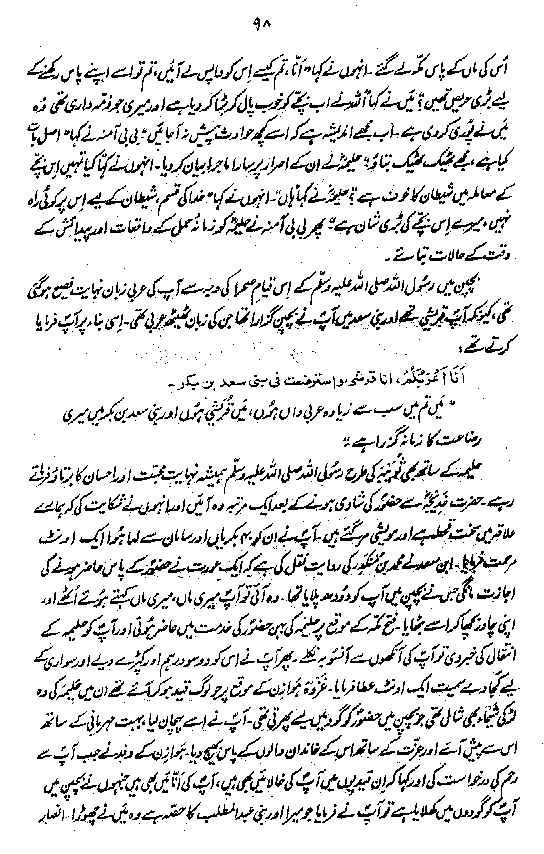 ۹۸
اُس کی ماں کے پاس مکّہ لے گئے۔ انہوں نے کہا "انّا، تم کیسے اِس کو واپس لے آئیں، تم تو اسے اپنے پاس رکھنے کے
لیے بڑی حریص تھیں؟ میں نے کہا "اللہ نے اب بچے کو خوب پال کر بڑا کر دیا ہے اور میری جو ذمّہ داری تھی وہ
میں نے پوری کر دی ہے۔ اب مجھے اندیشہ ہے کہ اسے کچھ حوادث پیش نہ آ جائیں" بی بی آمنہ نے کہا "اصل بات
کیا ہے، مجھے ٹھیک ٹھیک بتاؤ" حلیمہؓ نے ان کے اصرار پر سارا ماجرا بیان کر دیا۔ انہوں نے کہا کیا تمہیں اِس بچے
کے معاملہ میں شیطان کا خوف ہے؟ حلیمہؓ نے کہا ہاں"۔ انہوں نے کہا "خدا کی قسم، شیطان کے لیے اِس پر کوئی راہ
نہیں، میرے اِس بچے کی بڑی شان ہے"۔ پھر بی بی آمنہ نے حلیمہؓ کو زمانۂ حمل کے واقعات اور پیدائش کے
وقت کے حالات بتائے۔
بچپن میں رسول اللہ صلی اللہ علیہ وسلّم کے اِس قیامِ صحرا کی وجہ سے آپ کی عربی زبان نہایت فصیح ہو گئی
تھی، کیونکہ آپؐ قریشی تھے اور بنی سعد میں آپؐ نے بچپن گزارا تھا جن کی زبان ٹھیٹھ عربی تھی۔ اسی بناء پر آپؐ فرمایا
کرتے تھے،
اَنَا اَعْرَبُکُمْ، انا قرشی، واسترضعت فی بنی سعد بن بکر۔
"میں تم میں سب سے زیادہ عربی داں ہوں، میں قُریشی ہوں اور بنی سعد بن بکر میں میری
رضاعت کا زمانہ گزرا ہے"
حلیمہ کے ساتھ بھی ثُوَیْبہ کی طرح رسول اللہ صلی اللہ علیہ وسلّم ہمیشہ نہایت محبت اور احسان کا برتاؤ فرماتے
رہے۔ حضرت خدیجہؓ سے حضورؐ کی شادی ہونے کے بعد ایک مرتبہ وہ آئیں اور انہوں نے شکایت کی کہ ہمارے
علاقہ میں سخت قحط ہے اور مویشی مر گئے ہیں۔ آپؐ نے اُن کو ۴۰ بکریاں اور سامان سے لدا ہوا ایک اونٹ
مرحمت فرمایا۔ ابن سعد نے محمد بن مُنکدِر کی روایت نقل کی ہے کہ ایک عورت نے حضورؐ کے پاس حاضر ہونے کی
اجازت مانگی جس نے بچپن میں آپ کو دودھ پلایا تھا۔ وہ آئی تو آپؐ میری ماں، میری ماں کہتے ہوئے اُٹھے اور
اپنی چادر بچھا کر اسے بٹھایا۔ فتحِ مکّہ کے موقع پر حلیمہؓ کی بہن حضورؐ کی خدمت میں حاضر ہوئی اور آپؐ کو حلیمہ کے
انتقال کی خبر دی تو آپؐ کی آنکھوں سے آنسو بہ نکلے۔ پھر آپؐ نے اس کو دو سو درہم اور کپڑے دیے اور سواری کے
لیے کجاوے سمیت ایک اونٹ عطا فرمایا۔ غزوۂ ہوازن کے موقع پر جو لوگ قید ہو کر آئے تھے ان میں حلیمہؓ کی وہ
لڑکی شَیْماء بھی شامل تھی جو بچپن میں حضورؐ کو گود میں لیے پھرتی تھی۔ آپؐ نے اسے پہچان لیا، بہت مہربانی کے ساتھ
اس سے پیش آئے اور عزّت کے ساتھ اس کے خاندان والوں کے پاس بھیج دیا۔ ہوازن کے وفد نے جب آپؐ سے
رحم کی درخواست کی اور کہا کہ اِن قیدیوں میں آپؐ کی خالائیں بھی ہیں، آپؐ کی انّائیں بھی ہیں جنہوں نے بچپن میں
آپؐ کو گودوں میں کھلایا ہے تو آپؐ نے فرمایا جو میرا اور بنی عبدالمطلب کا حصّہ ہے وہ میں نے چھوڑا۔ انصار